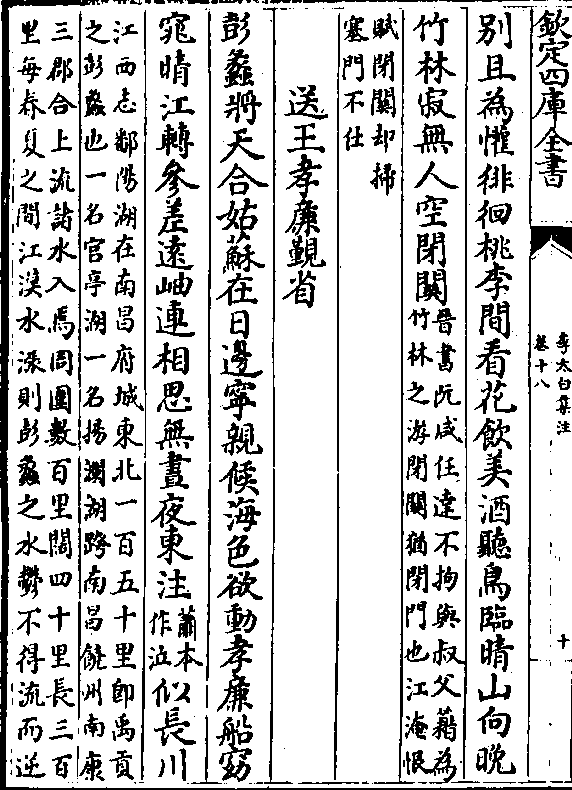 欽定四庫全書
李太白集注
卷十八
十
别且為懽徘徊桃李間看花飲美酒聽鳥臨晴山向晚
竹林寂無人空閉關
晉書阮咸任達不拘與叔父籍為
竹林之游閉關猶閉門也江淹恨
賦閉關却掃
塞門不仕
送王孝廉覲省
彭蠡將天合姑蘇在日邊寧親候海色欲動孝廉船窈
窕晴江轉參差遠岫連相思無晝夜東注
蕭本
作泣
似長川
江西志鄱陽湖在南昌府城東北一百五十里即禹貢
之彭蠡也一名宫亭湖一名揚瀾湖跨南昌饒州南康
三郡合上流諸水入焉周圍數百里闊四十里長三百
里每春夏之間江漢水漲則彭蠡之水鬱不得流而逆